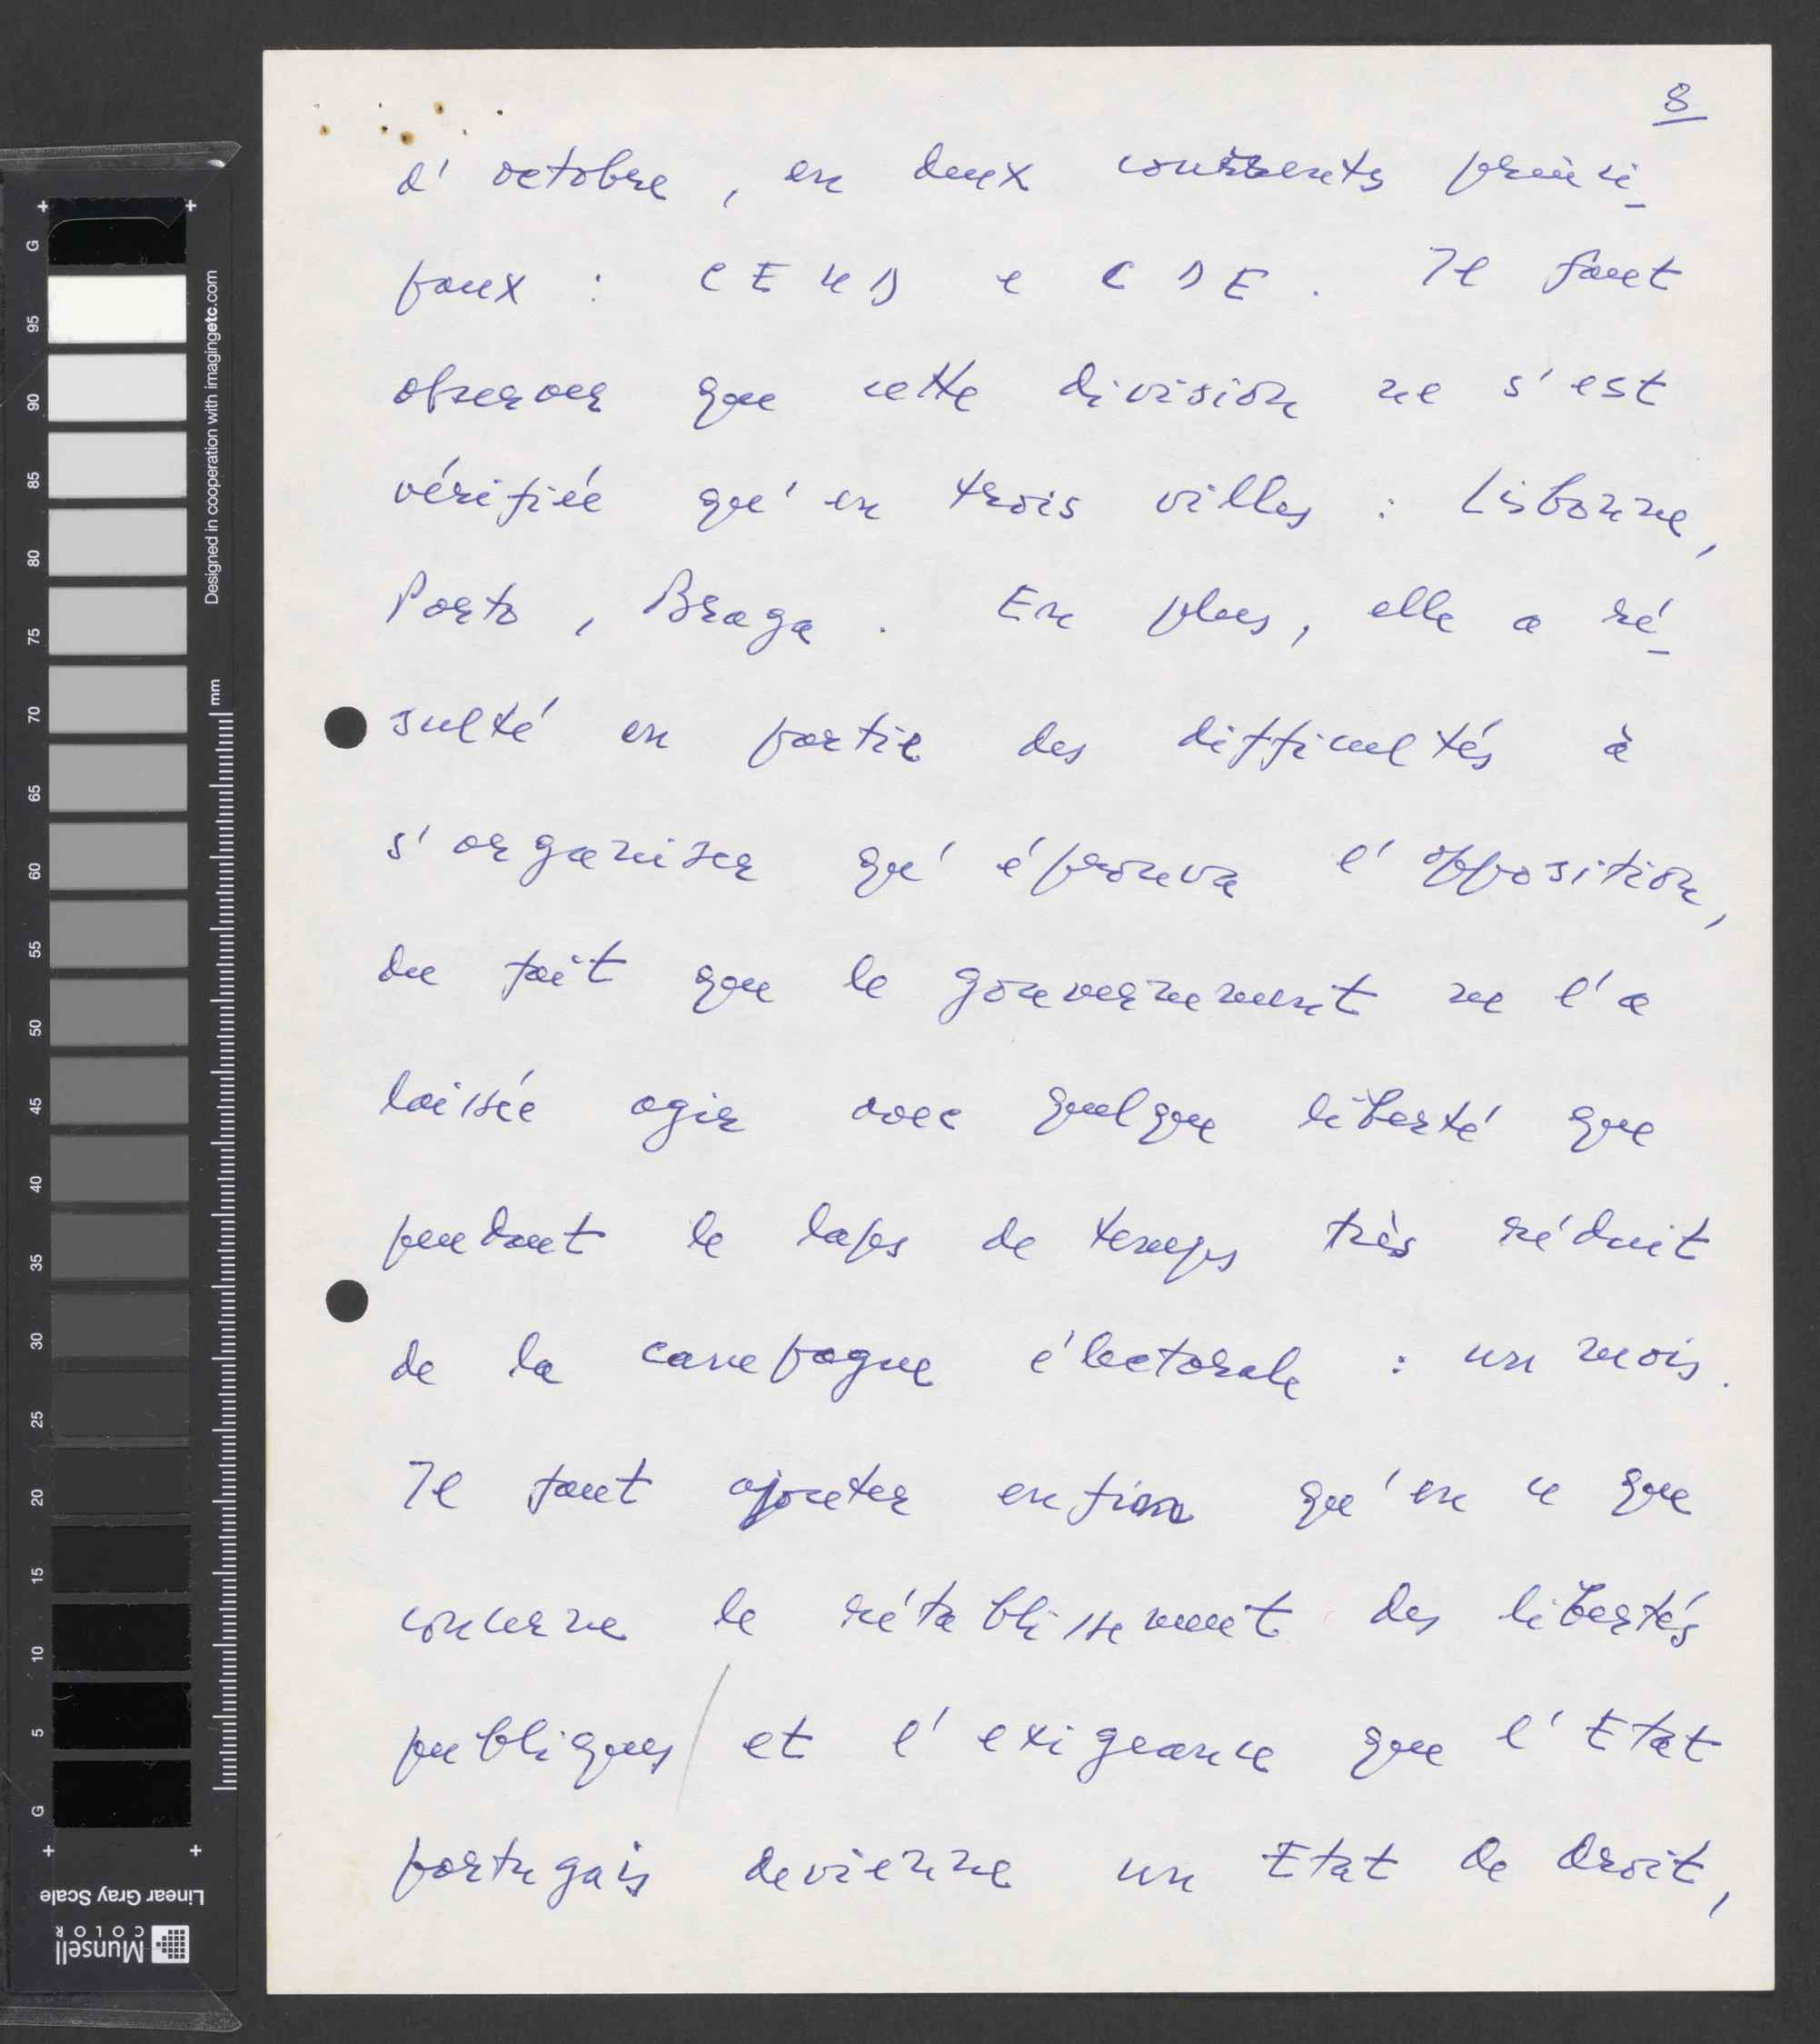 8
d'octobre, en deux courrents princi-
paux : CEUD e CDE. Il faut
observer que cette division ne s'est
vérifiée qu'en trois villes : Lisbonne,
Porto, Braga. En plus, elle a ré-
sulté en partie des difficultés à
s'organiser qu'éprouva l'opposition,
du fait que le gouvernement ne l'a
laissée agir avec quelque liberté que
pendant le laps de temps très réduit
de la campagne électorale : un mois.
Il faut ajouter enfin qu'en ce que
concerne le rétablissement des libertés
publiques / et l'exigeance que l'Etat
portugais devienne un Etat de droit,
G 95 90 85 80 75 70 65 60 55 50 45 40 35 30 25 20 15 10 5 G
Designed in cooperation with imagingetc.com
mm
Linear Gray Scale
Munsell
COLOR